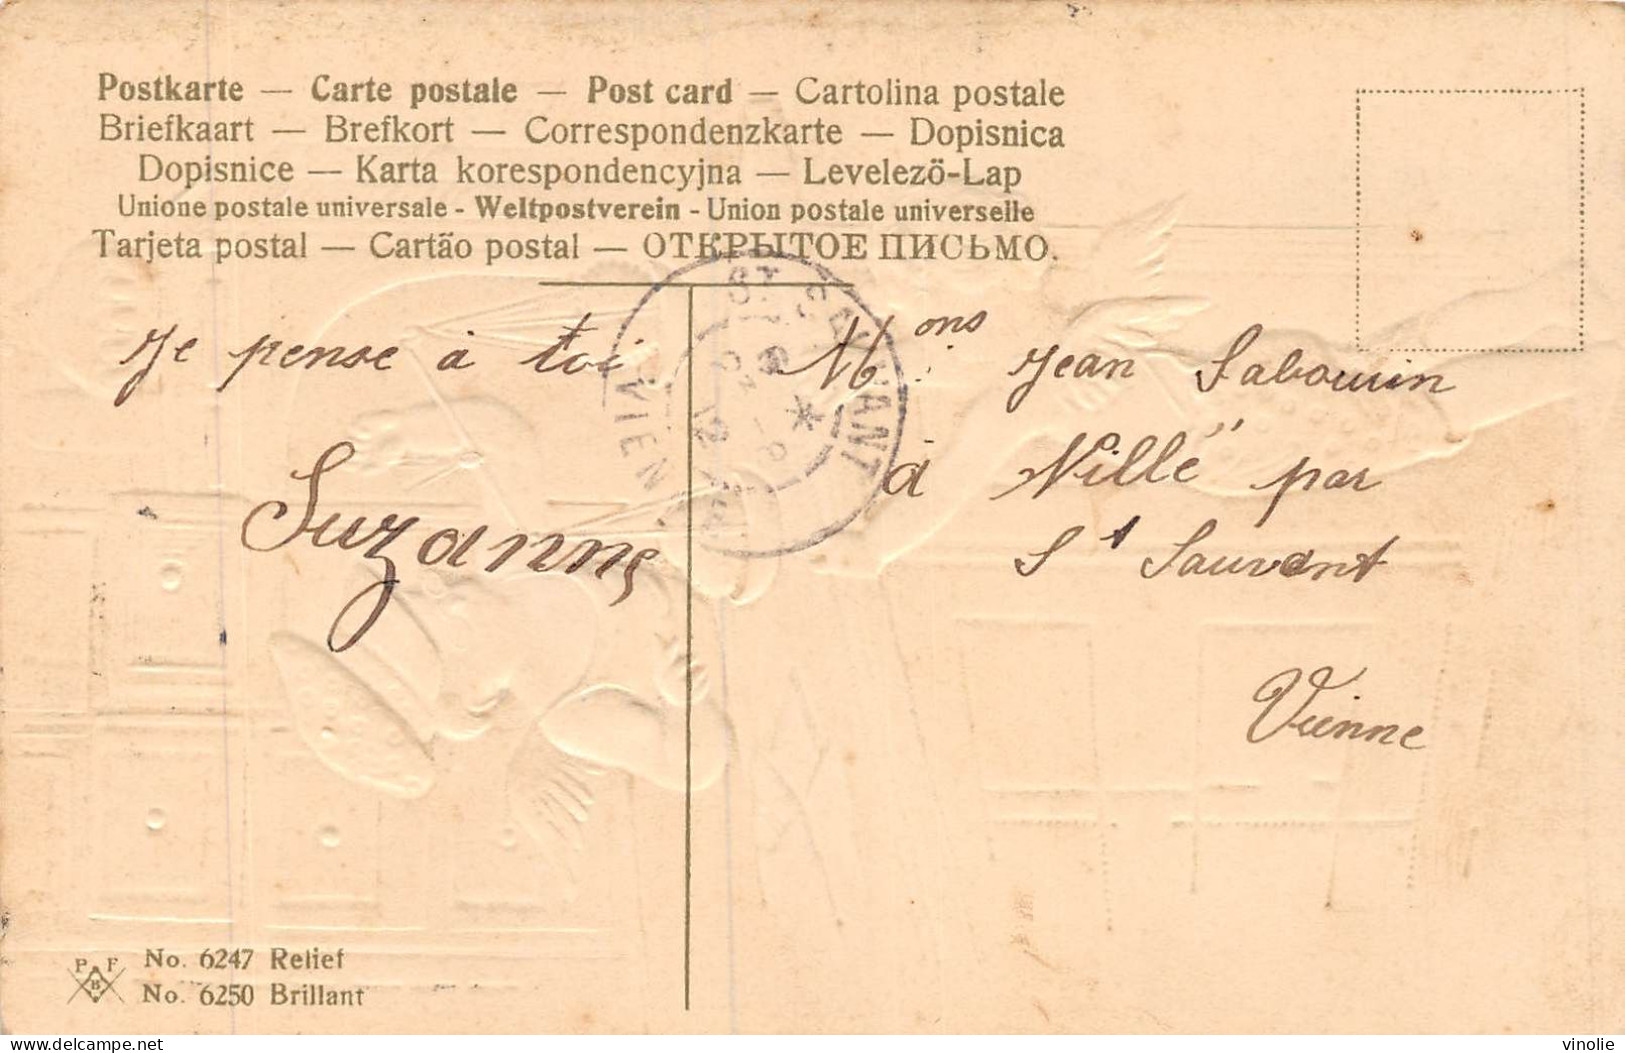 Postkarte — Carte postale — Post card — Cartolina postale
Briefkaart — Brefkort — Correspondenzkarte — Dopisnica
Dopisnice — Karta korespondencyjna — Levelezö-Lap
Unione postale universale - Weltpostverein - Union postale universelle
Tarjeta postal — Cartão postal — ОТКРЫТОЕ ПИСЬМО.
Je pense à toi
Suzanne
Mons Jean Sabourin
à Nillé par
St Sauvant
Vienne
ST SAUVANT
VIENNE
P F
B
No. 6247 Relief
No. 6250 Brillant
delcampe.net
vinolie